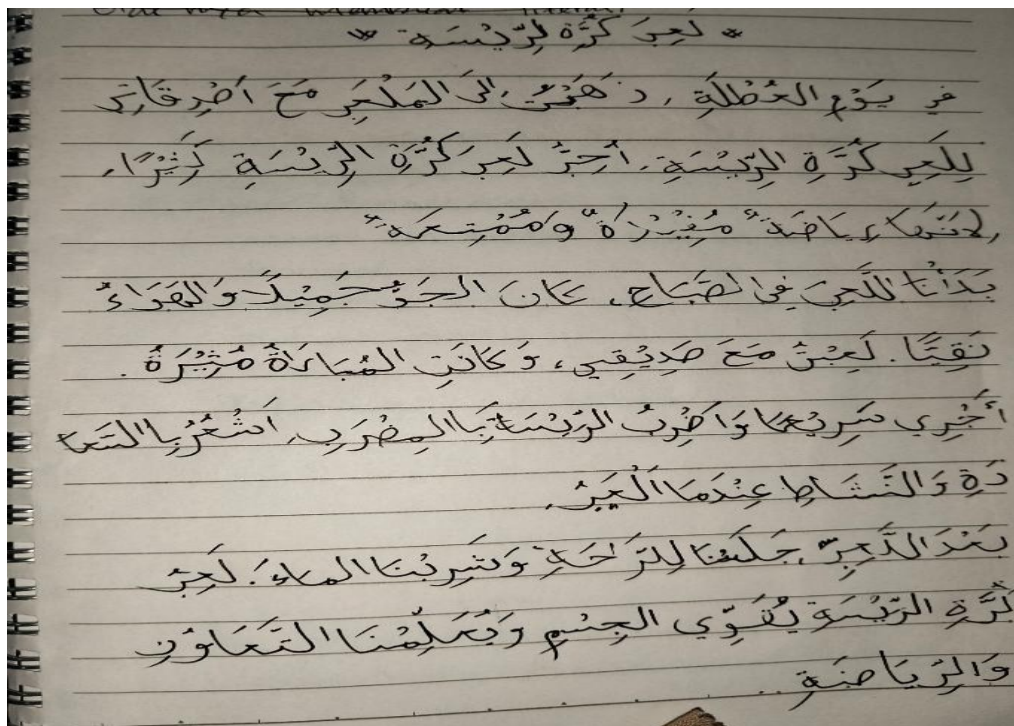 * لَعِبَ كُرَّة الرِّيْسَة *
في يَوْمِ العُطْلَةِ، ذَهَبْتُ إلَى المَلْعَبِ مَعَ أَصْدِقَائِي
لِلَعِبِ كُرَّةِ الرِّيْسَةِ. أُحِبُّ لَعِبَ كُرَّةِ الرِّيْسَةِ كَثِيْرًا،
لِأَنَّهَا رِيَاضَةٌ مُفِيْدَةٌ وَمُمْتِعَةٌ
بَدَأْنَا اللَّعِبَ فِي الصَّبَاحِ. كَانَ الجَوُّ جَمِيْلًا وَالهَوَاءُ
نَقِيًّا. لَعِبْتُ مَعَ صَدِيْقِي، وَكَانَتِ المُبَارَاةُ مُثِيْرَةً.
أَجْرِي سَرِيْعًا وَاَضْرِبُ الرِّيْسَةَ بِاالمِضْرَبِ. اَشْعُرُ بِاالسَّعَا
دَةِ وَالنَّشَاطِ عِنْدَمَا اَلْعَبُ.
بَعْدَ اللَّعِبِ، جَلَسْنَا لِلرَّاحَةِ وَشَرِبْنَا المَاءَ. لَعِبُ
كُرَّةِ الرِّيْسَةِ يُقَوِّي الجِسْمِ وَيُعَلِّمُنَا التَّعَاوُنِ
وَالرِّيَاضَةِ.